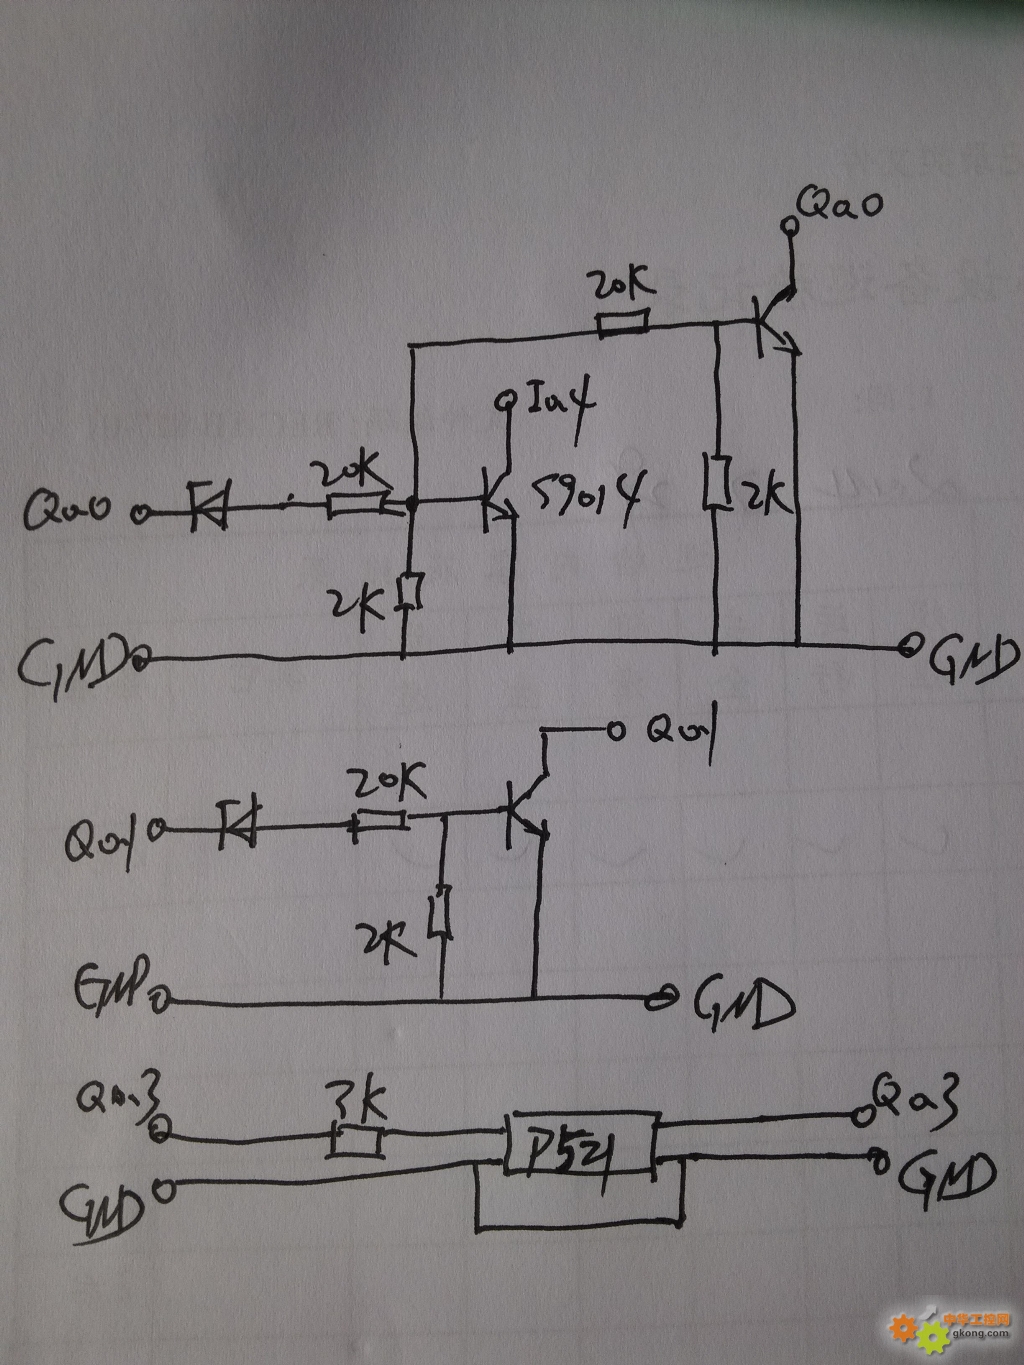 Qa0
20K
Ia4
20K
Qa0
S9014
2K
2K
GND
GND
Qa1
20K
Qa1
2K
GND
GND
Qa3
3K
Qa3
P521
GND
GND
中华工控网
gkong.com